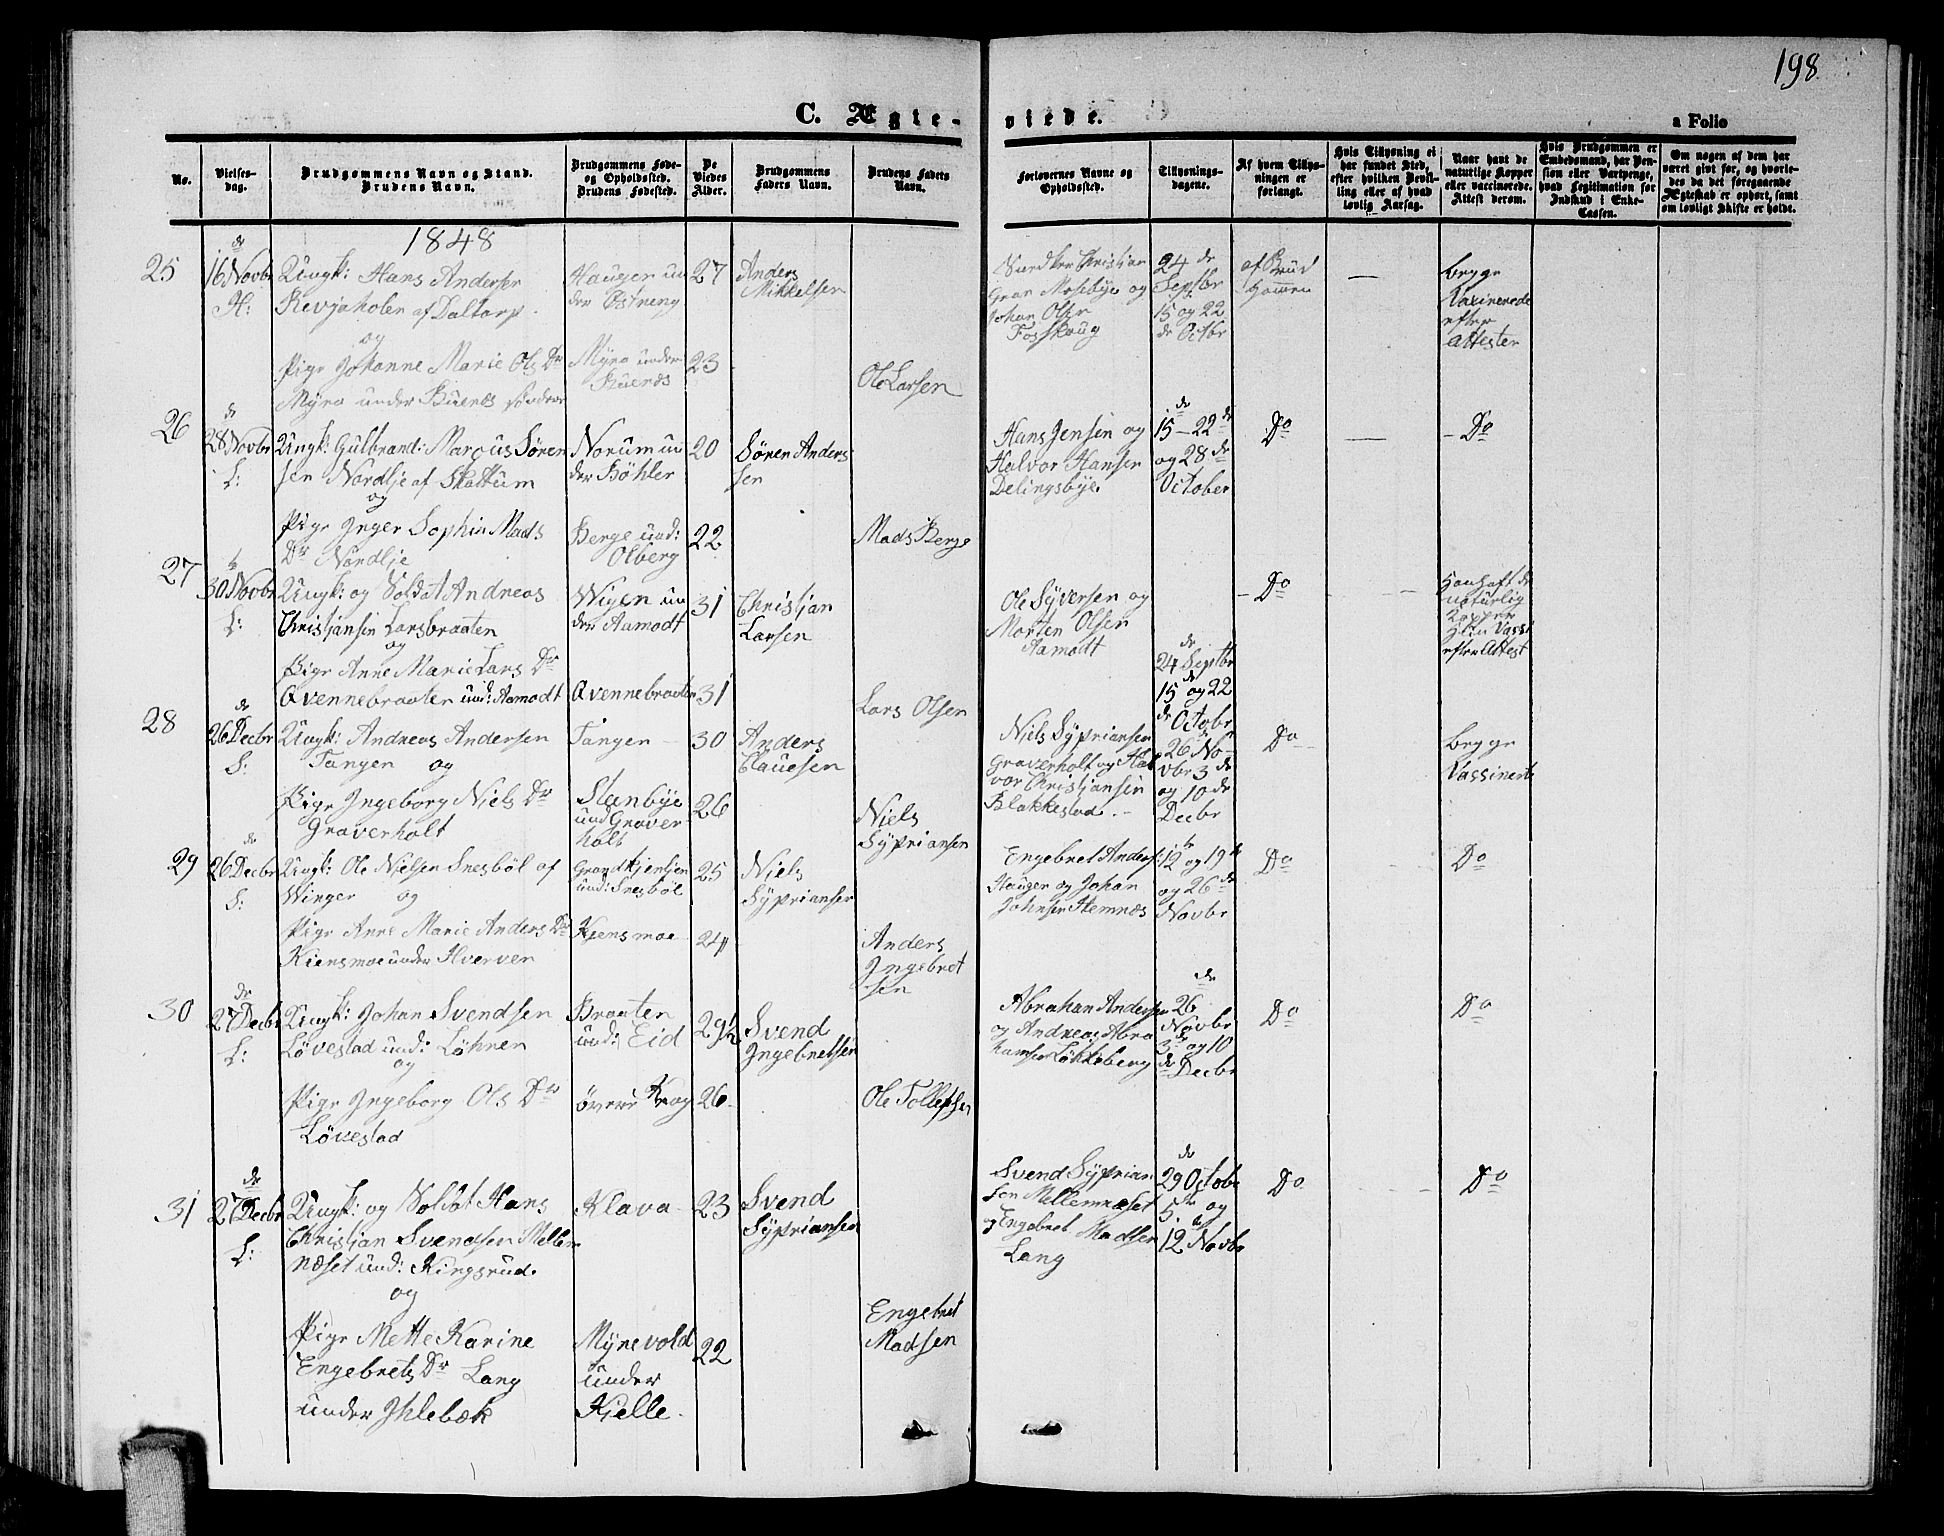 198
C. Ægte-viede.
a Folio
No.
Vielses-dag.
Brudgommens Navn og Stand.
Brudens Navn.
Brudgommens Føde- og Opholdssted.
Brudens Fødested.
De Viedes Alder.
Brudgommens Faders Navn.
Brudens Faders Navn.
Forlovernes Navne og Opholdssted.
Tillysnings-dagene.
Af hvem Tillysningen er forlangt.
Hvis Tillysning ei har fundet Sted, efter hvilken Bevilling eller af hvad lovlig Aarsag.
Naar havt de naturlige Kopper eller vaccinerede. Attest derom.
Hvis Brudgommen er Embedsmand, har Pension eller Vartpenge, hvad Legitimation for Indskud i Enke-Cassen.
Om nogen af dem har været gift før, og hvorledes da det foregaaende Ægteskab er ophørt, samt om lovligt Skifte er holdt.
1848
25
16 de Novbr
H:
Ungk: Hans Andersen
Revjaholen af Daltorp
og
Pige Johanne Marie Ols Dr
Myra under Buenæs søndre
Haugen un
der Østreng
Myra under
Buenæs
27
23
Anders
Mikkelsen
Ole Larsen
Christian
Mosebye og
Johan Olsen
Fosskaug
24 de
Septbr
15 og 22
de Octbr
af Brud
gommen
—
begge
Vaxinerede
efter
attester
26
28 de Novbr
L:
Ungk: Gulbrand: Marcus Søren
sen Nordlje af Skattum
og
Pige Inger Sophie Mads
Dr Nordlje
Norum un
der Bøhler
Berge und:
Olberg
20
22
Søren Anders
sen
Mads Berge
Hans Jensen og
Halvor Hansen
Delingsbye
de
15 – 22 de
og 28 de
October
Do
—
– Do
27
30 Novbr
L:
Ungk: og Soldat Andreas
Christjansen Larsbraaten
og
Pige Anne Marie Lars Dr
Qvennebraaten und: Aamodt
Wigen un
der Aamodt
Qvennebraaten
31
31
Christjan
Larsen
Lars Olsen
Ole Syversen og
Morten Olsen
Aamodt
de
24 Septbr
15 de og 22
de Octobr
– Do
Han haft de
naturlig
Kopper
Hun Vassi
efter Attest
28
26 de Decbr
S:
Ungk: Andreas Andersen
Tangen og
Pige Ingeborg Niels Dr
Graverholt
Tangen –
Stenbye
und Graver-
holt
30
26
Anders
Clauesen
Niels
Sypriansen
Niels Sypriansen
Graverholt og Hal
vor Christjansen
Blakkestad. –
26 No-
vbr 3 de
og 10 de
Decbr
Do
begge
Vassinerte
29
26 de Decbr
S:
Ungk: Ole Nielsen Snesbøl af
Winger og
Pige Anne Marie Anders Dr
Kiensmoe under Hverven
Grandkjentjen
und: Snesbøl
Kjensmoe
25
24
Niels
Sypriansen
Anders
Ingebret
sen
Engebret Anders:
Haugen og Johan
Johnsen Hemnæs
12 te og 19 de
og 26 de
Novbr
Do
Do
30
27 de Decbr
L:
Ungk: Johan Svendsen
Løvestad und: Løhren
og
Pige Ingeborg Ols Dr
Løvestad
Braaten
und: Eid
øvere Krog
29½
26
Svend
Ingebretsen
Ole Tollefsen
Abrahan Andersen
og Andreas Abra
hamsen Løkkeberg
de
26
Novbr
3 de og 10
de Decbr
Do
Do
31
27 de Decbr
L:
Ungk: og Soldat Hans
Christjan Svendsen Mellem
næset und: Kingsrud.
og
Pige Mette Karine
Engebrets Dr Lang
under Ihlebæk
Klava
Myrevold
under
Kjelle.
23
22
Svend
Sypriansen
Engebret
Madsen
Svend Syprian
sen Mellemnæset
og Engebret Madsen
Lang
de
29 Octobr
5 te og
12 te Novbr
Do
Do